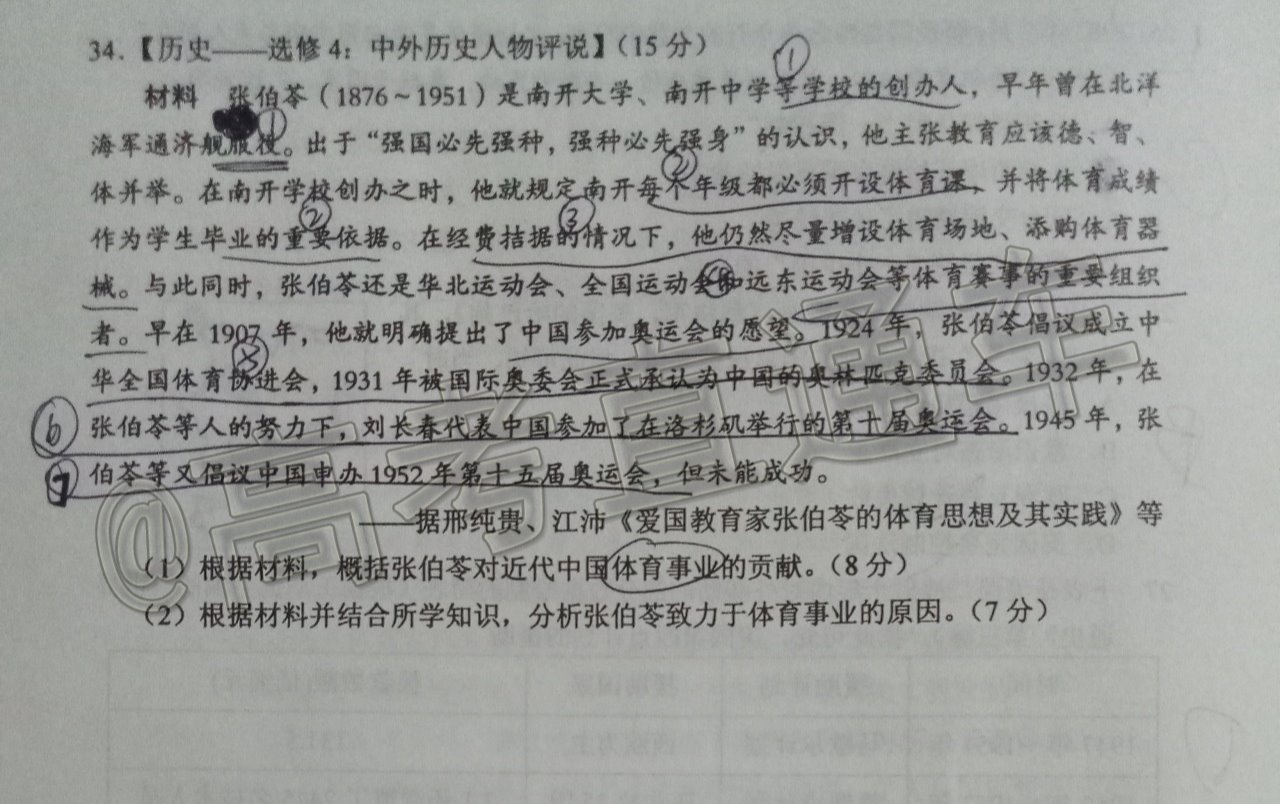 34.【历史——选修4：中外历史人物评说】（15分）
①
材料 张伯苓（1876～1951）是南开大学、南开中学等学校的创办人，早年曾在北洋
①
海军通济舰服役。出于“强国必先强种，强种必先强身”的认识，他主张教育应该德、智、
②
体并举。在南开学校创办之时，他就规定南开每个年级都必须开设体育课、并将体育成绩
② ③
作为学生毕业的重要依据。在经费拮据的情况下，他仍然尽量增设体育场地、添购体育器
械。与此同时，张伯苓还是华北运动会、全国运动会和远东运动会等体育赛事的重要组织
者。早在1907年，他就明确提出了中国参加奥运会的愿望。1924年，张伯苓倡议成立中
华全国体育协进会，1931年被国际奥委会正式承认为中国的奥林匹克委员会。1932年，在
⑥ 张伯苓等人的努力下，刘长春代表中国参加了在洛杉矶举行的第十届奥运会。1945年，张
⑦ 伯苓等又倡议中国申办1952年第十五届奥运会，但未能成功。
——据邢纯贵、江沛《爱国教育家张伯苓的体育思想及其实践》等
（1）根据材料，概括张伯苓对近代中国体育事业的贡献。（8分）
（2）根据材料并结合所学知识，分析张伯苓致力于体育事业的原因。（7分）
@高考直通车